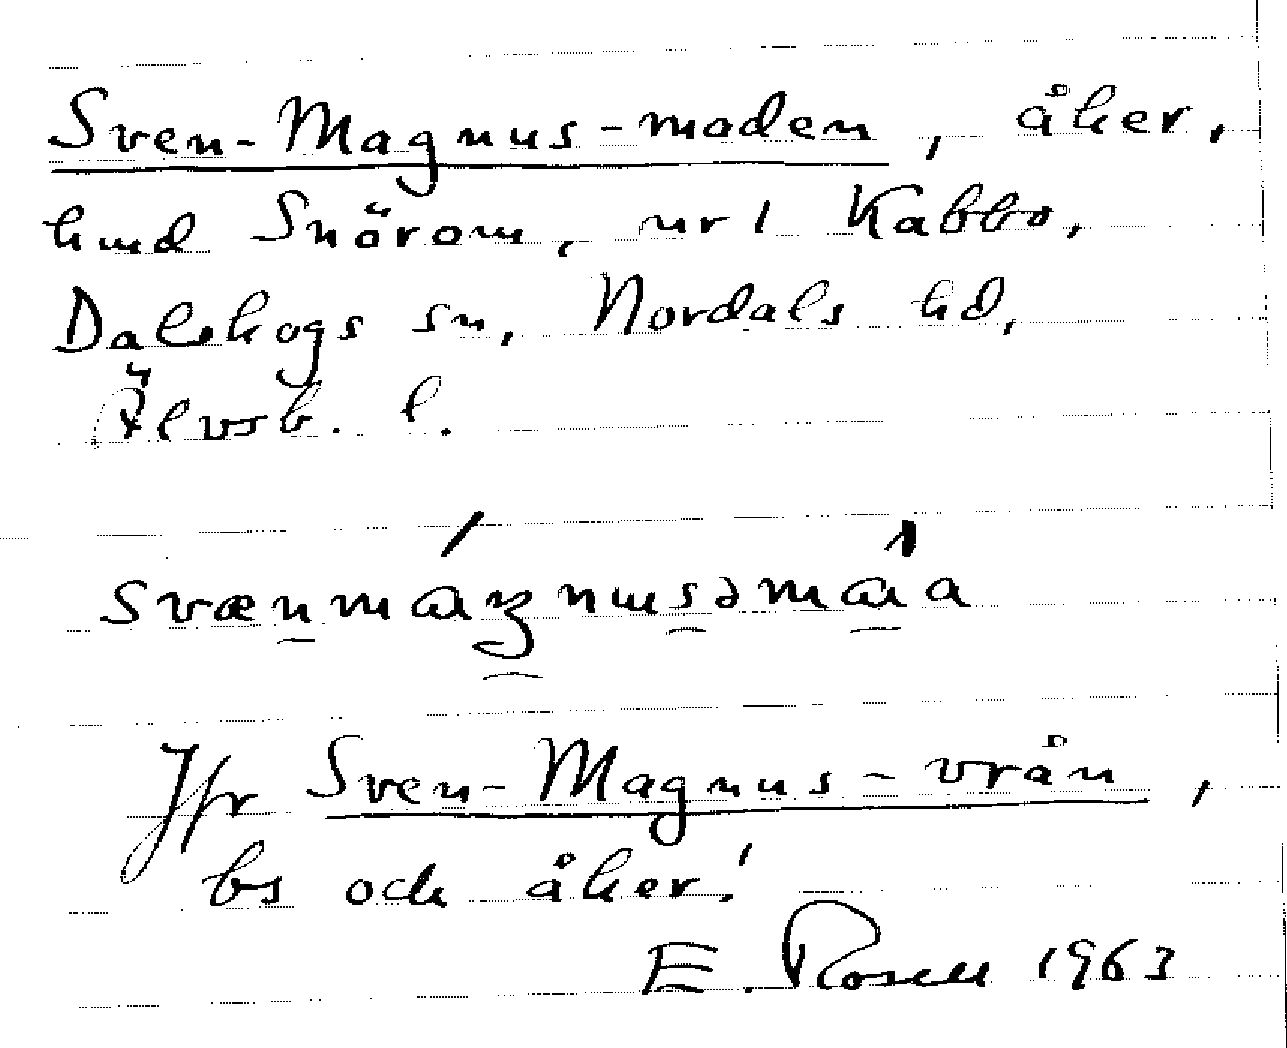 Sven-Magnus-moden, åker,
hmd Snörom, nr 1 Kabbo,
Dalskogs sn, Nordals hd,
Älvsb. l.
Jfr Sven-Magnus-vrån,
bs och åker!
E. Rosell 1963